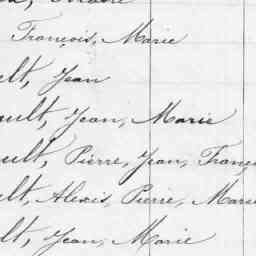 François, Marie
ult, Jean
ault, Jean, Marie
ult, Pierre, Jean, Franç
ult, Alexis, Pierre, Marie
ult, Jean, Marie